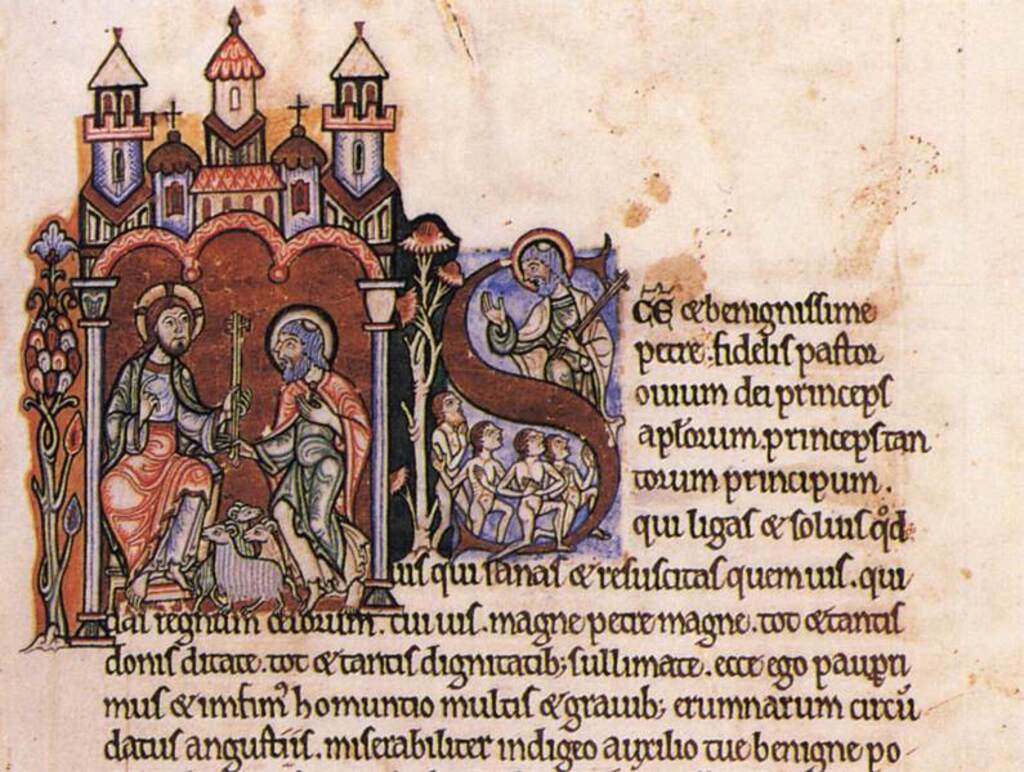 SCE & benignissime
petre . fidelis pastor
ouium dei princeps
apl̄orum . princeps tan
torum principum .
qui ligas & soluis qđ
uis qui sanas & resuscitas quem uis . qui
das regnum celorum . cui uis . magne petre magne . tot & tantis
donis ditate . tot & tantis dignitatib; sullimate . ecce ego paupri
mus & imfim⁹ homuntio multis & grauib; erumnarum circū
datus angustiis . miserabiliter indigeo auxilio tue benigne po-